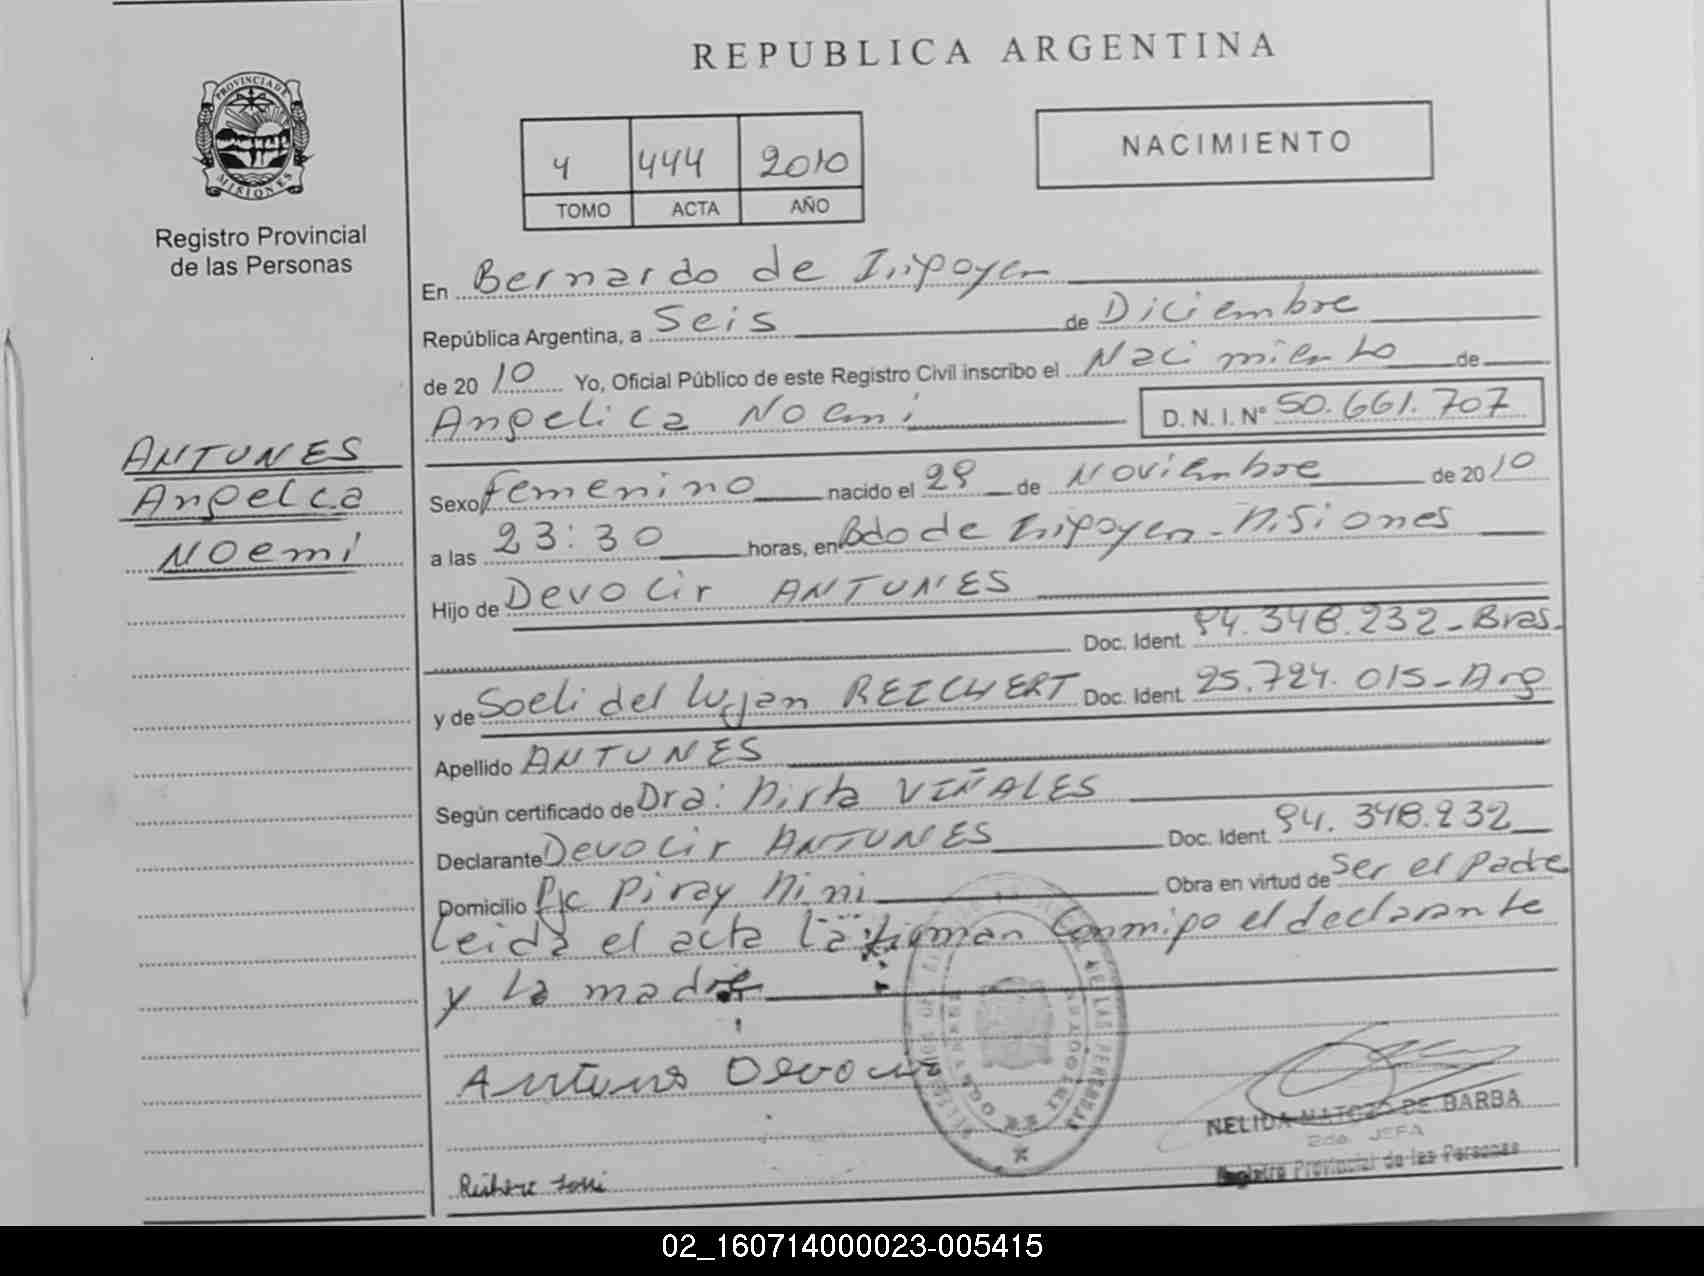 REPUBLICA ARGENTINA
PROVINCIA DE
MISIONES
Registro Provincial
de las Personas
4 444 2010
TOMO ACTA AÑO
NACIMIENTO
En Bernardo de Iripoyen
República Argentina, a Seis de Diciembre
de 2010 Yo, Oficial Público de este Registro Civil inscribo el Nacimiento de
Angelica Noemi D.N.I. N° 50.661.707
ANTUNES
Angelca
Noemi
Sexo femenino nacido el 28 de Noviembre de 2010
a las 23:30 horas, en Bdo de Iripoyen - Misiones
Hijo de Devocir ANTUNES
Doc. Ident. 94.348.232 - Bras.
y de Soeli del Lujan REICHERT Doc. Ident. 25.724.015 - Arg
Apellido ANTUNES
Según certificado de Dra: Mirta VIÑALES
Declarante Devocir ANTUNES Doc. Ident. 94.348.232
Domicilio Pje Piray Mini Obra en virtud de Ser el padre
Leida el acta la firman Conmigo el declarante
y la madre
Antunes Devocir
NELIDA MATOZO DE BARBA
2da. JEFA
Registro Provincial de las Personas
02_160714000023-005415